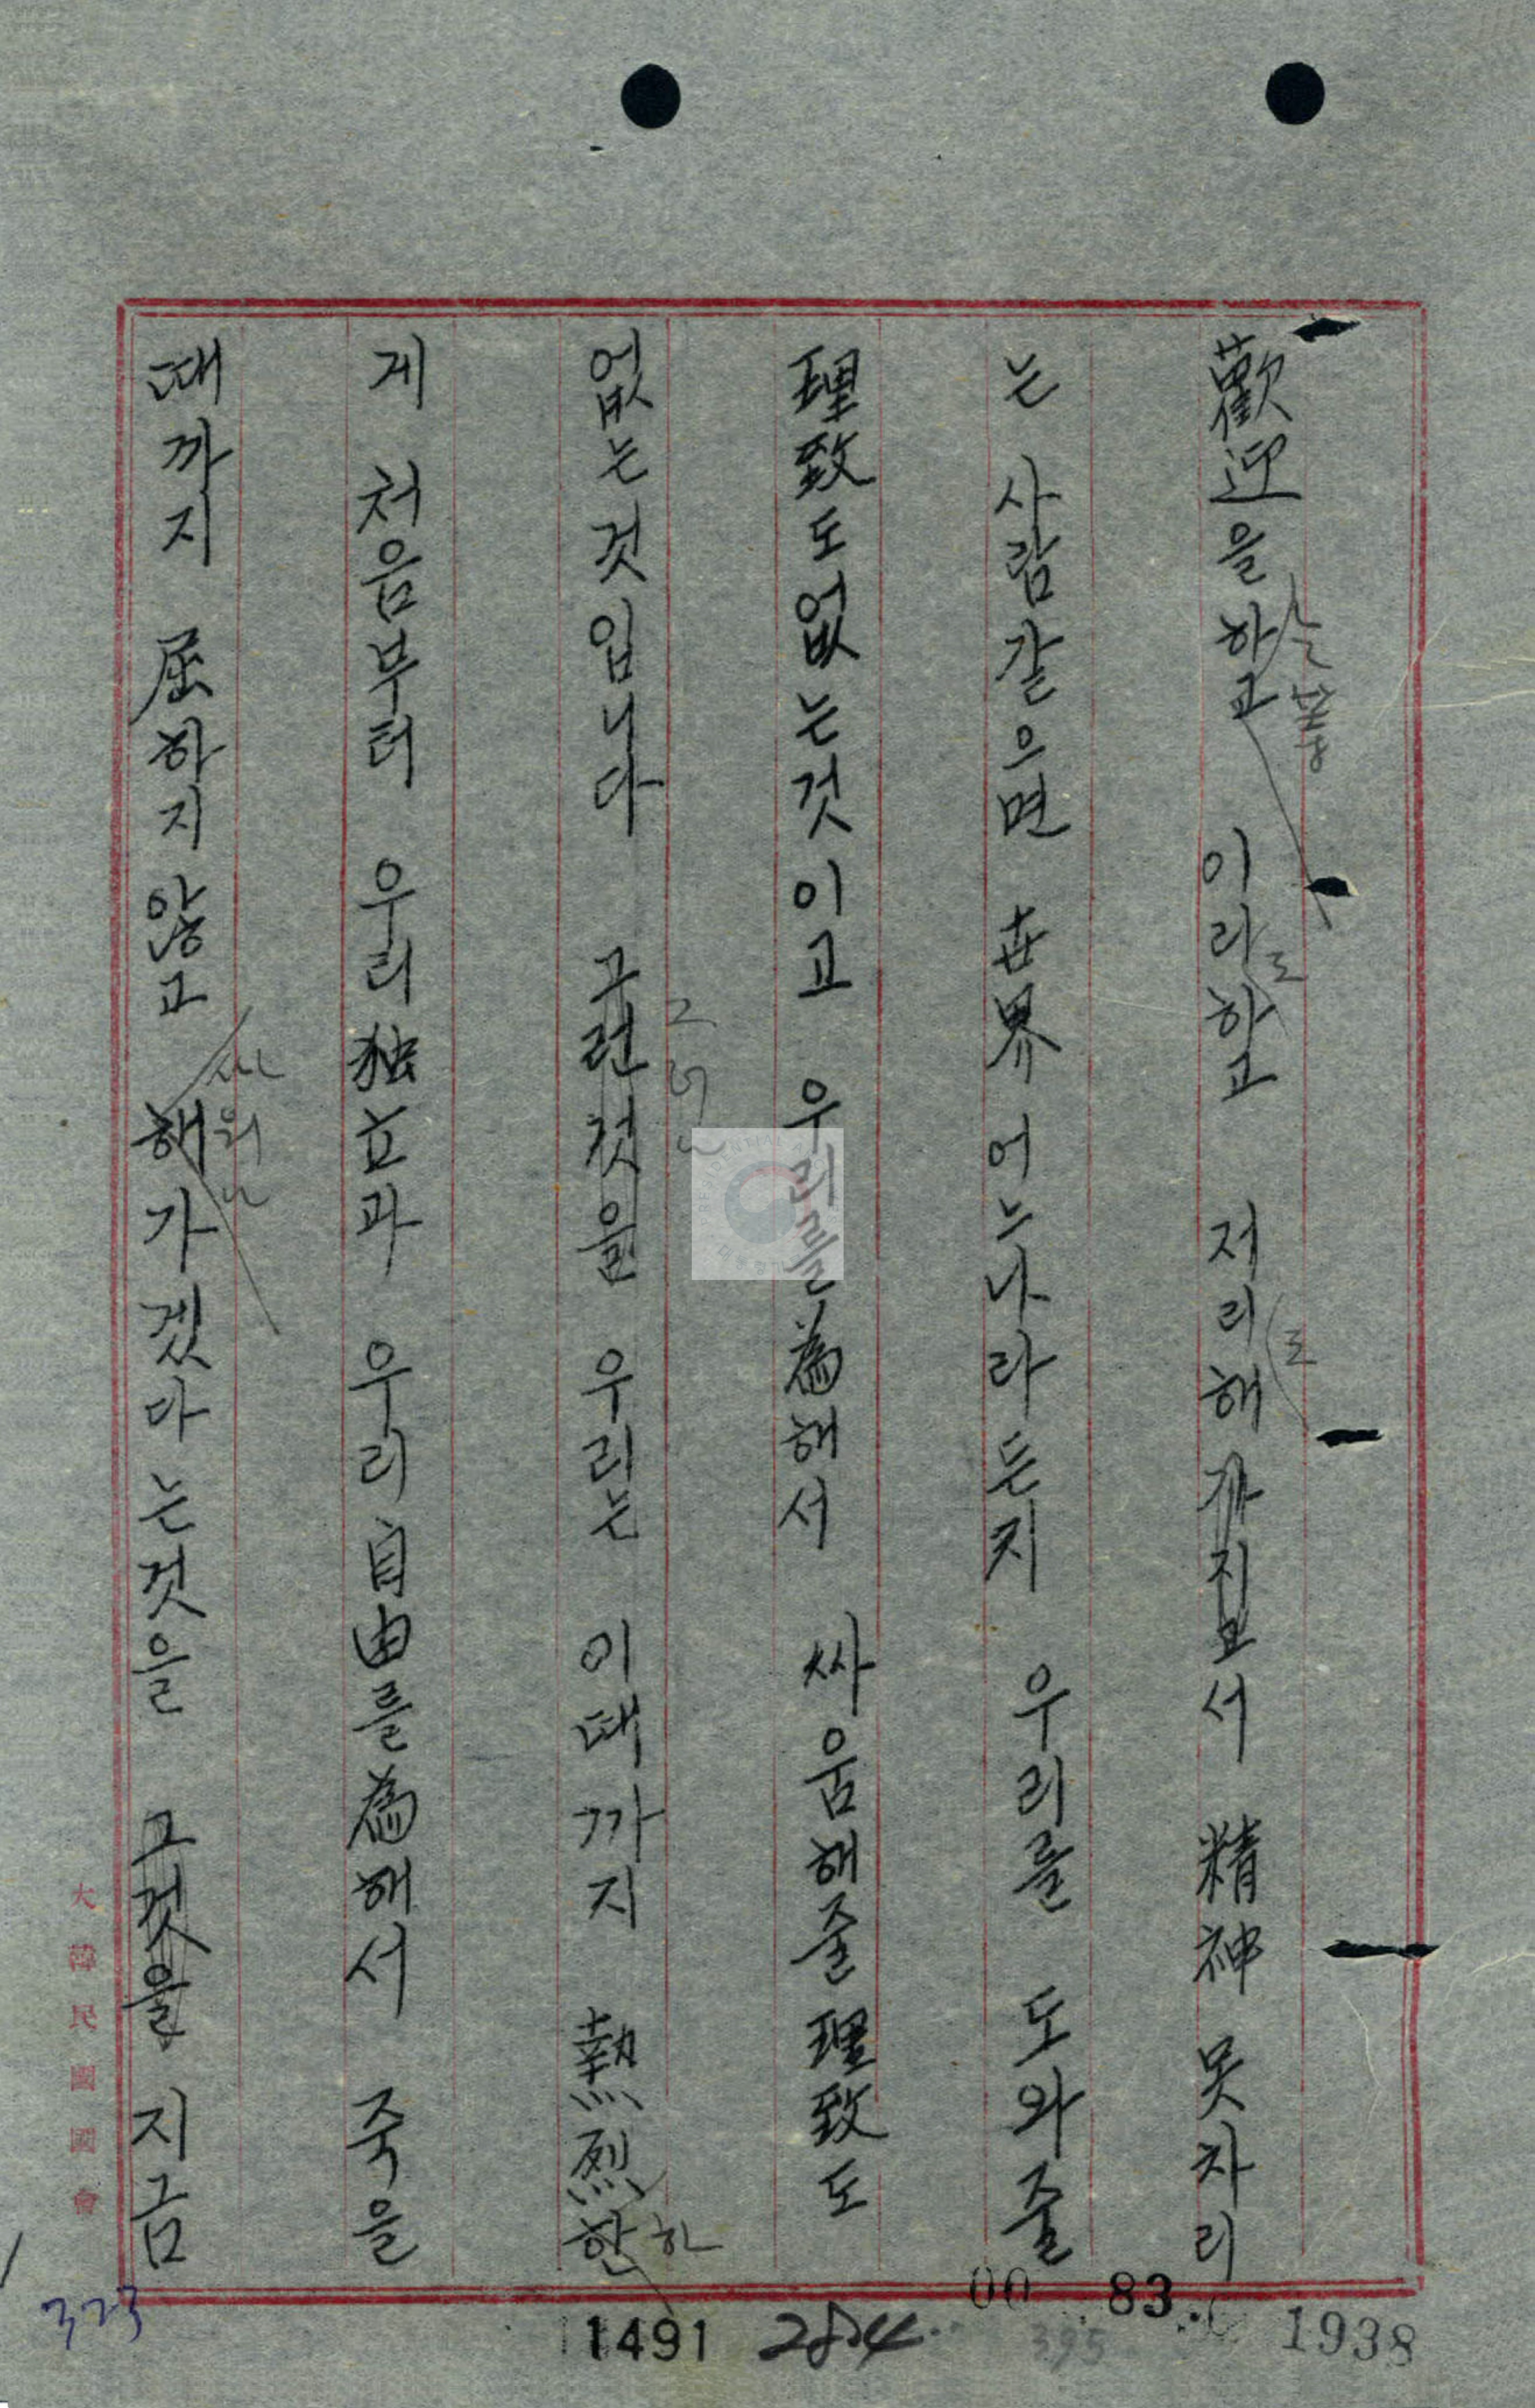 歡迎을하고 이리하고 저리해가지고서 精神 못차리
는 사람같으면 世界 어느나라든지 우리를 도와줄
理致도없는것이고 우리를爲해서 싸움해줄理致도
없는것입니다 그런것을 우리는 이때까지 熱烈한
게 처음부터 우리独立과 우리自由를爲해서 죽을
때까지 屈하지않고 해가겠다는것을 그것을 지금
도
도
하
大韓民國國會
323
1491
284
00
83
395
1938